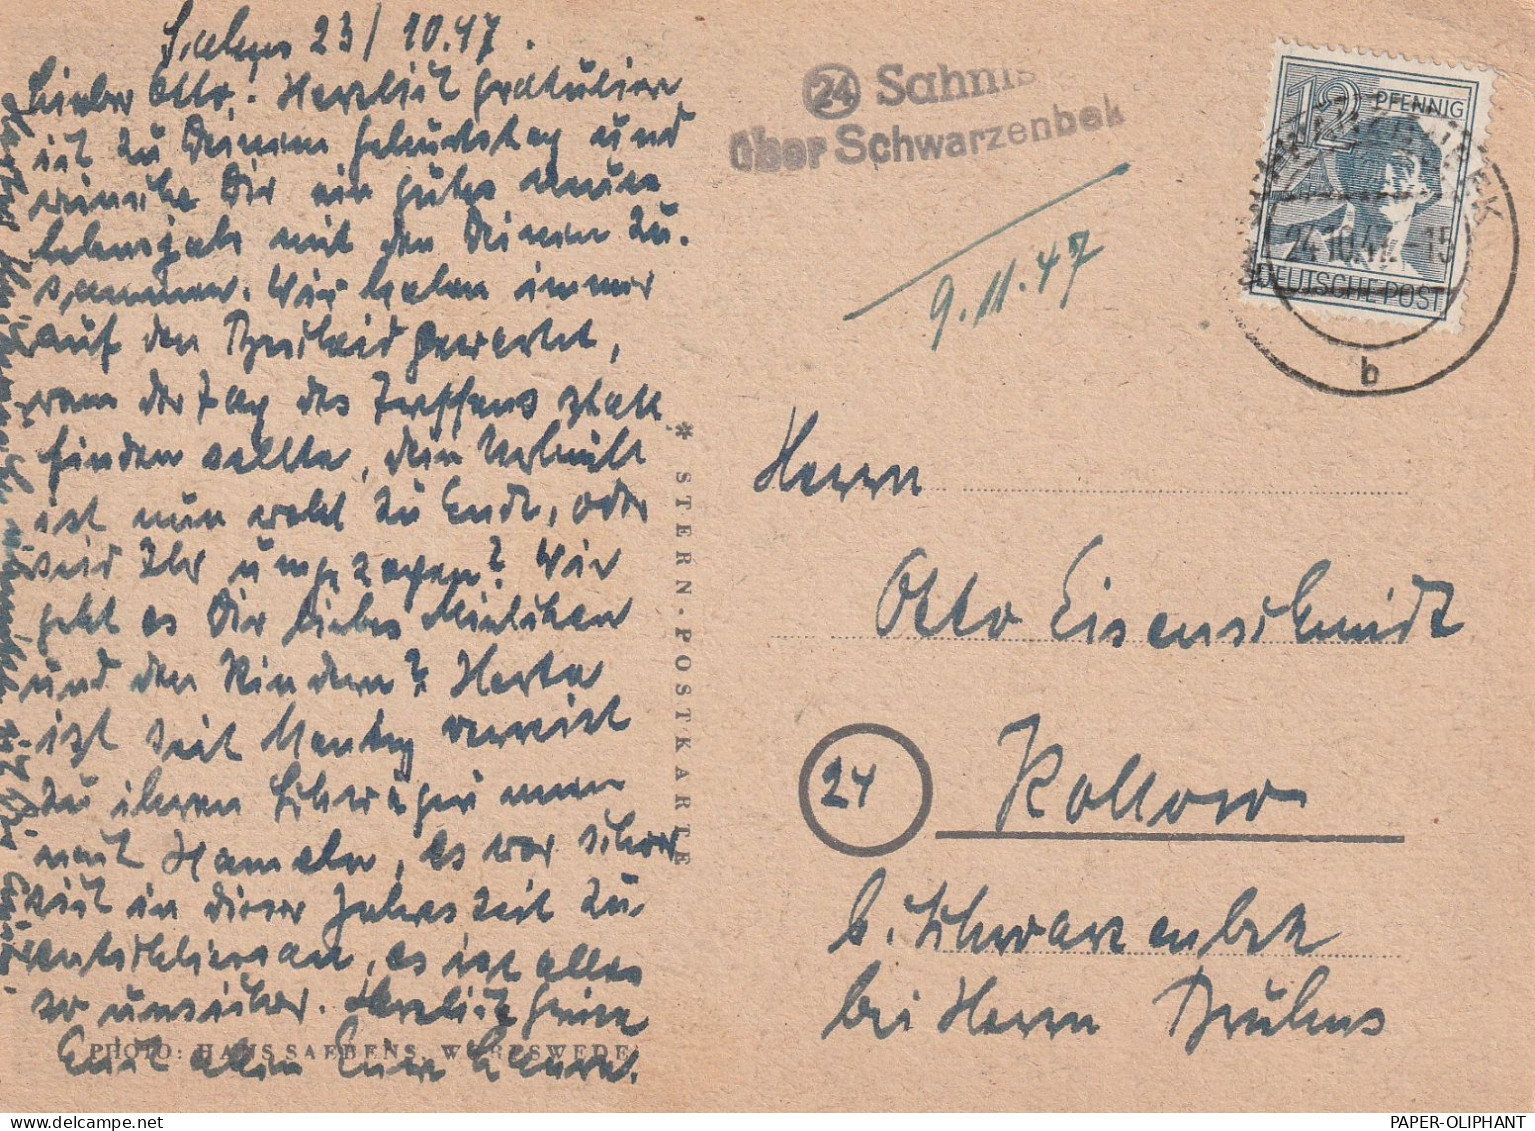 Sahms 23/10.47.
Lieber Otto, Herzlich gratuliere
ich zu Deinem Geburtstag und
wünsche Dir ein gutes neues
Lebensjahr mit den Deinen zu-
sammen. Wir haben immer
auf den Bescheid gewartet,
wann der Tag des Treffens statt
finden sollte, dein Urlaub
ist nun wohl zu Ende, oder
seid Ihr umgezogen? Wie
geht es Dir liebes Mielchen
und den Kindern? Herta
ist seit Montag verreist
zu ihren Schwägerinnen
nach Hameln, es war schwer
sich in dieser Jahreszeit zu
entschliessen, es ist alles
so unsicher. Herzlich grüsse
Euch allen Eure
PHOTO: HANS SAEBENS, WORPSWEDE
* STERN-POSTKARTE
24 Sahms
über Schwarzenbek
9.11.47
12 PFENNIG
DEUTSCHE POST
SCHWARZENBEK
24.10.47 15
b
Herrn
Otto Eisenschmidt
24 Kollow
b. Schwarzenbek
bei Herrn Bruhns
PAPER-OLIPHANT